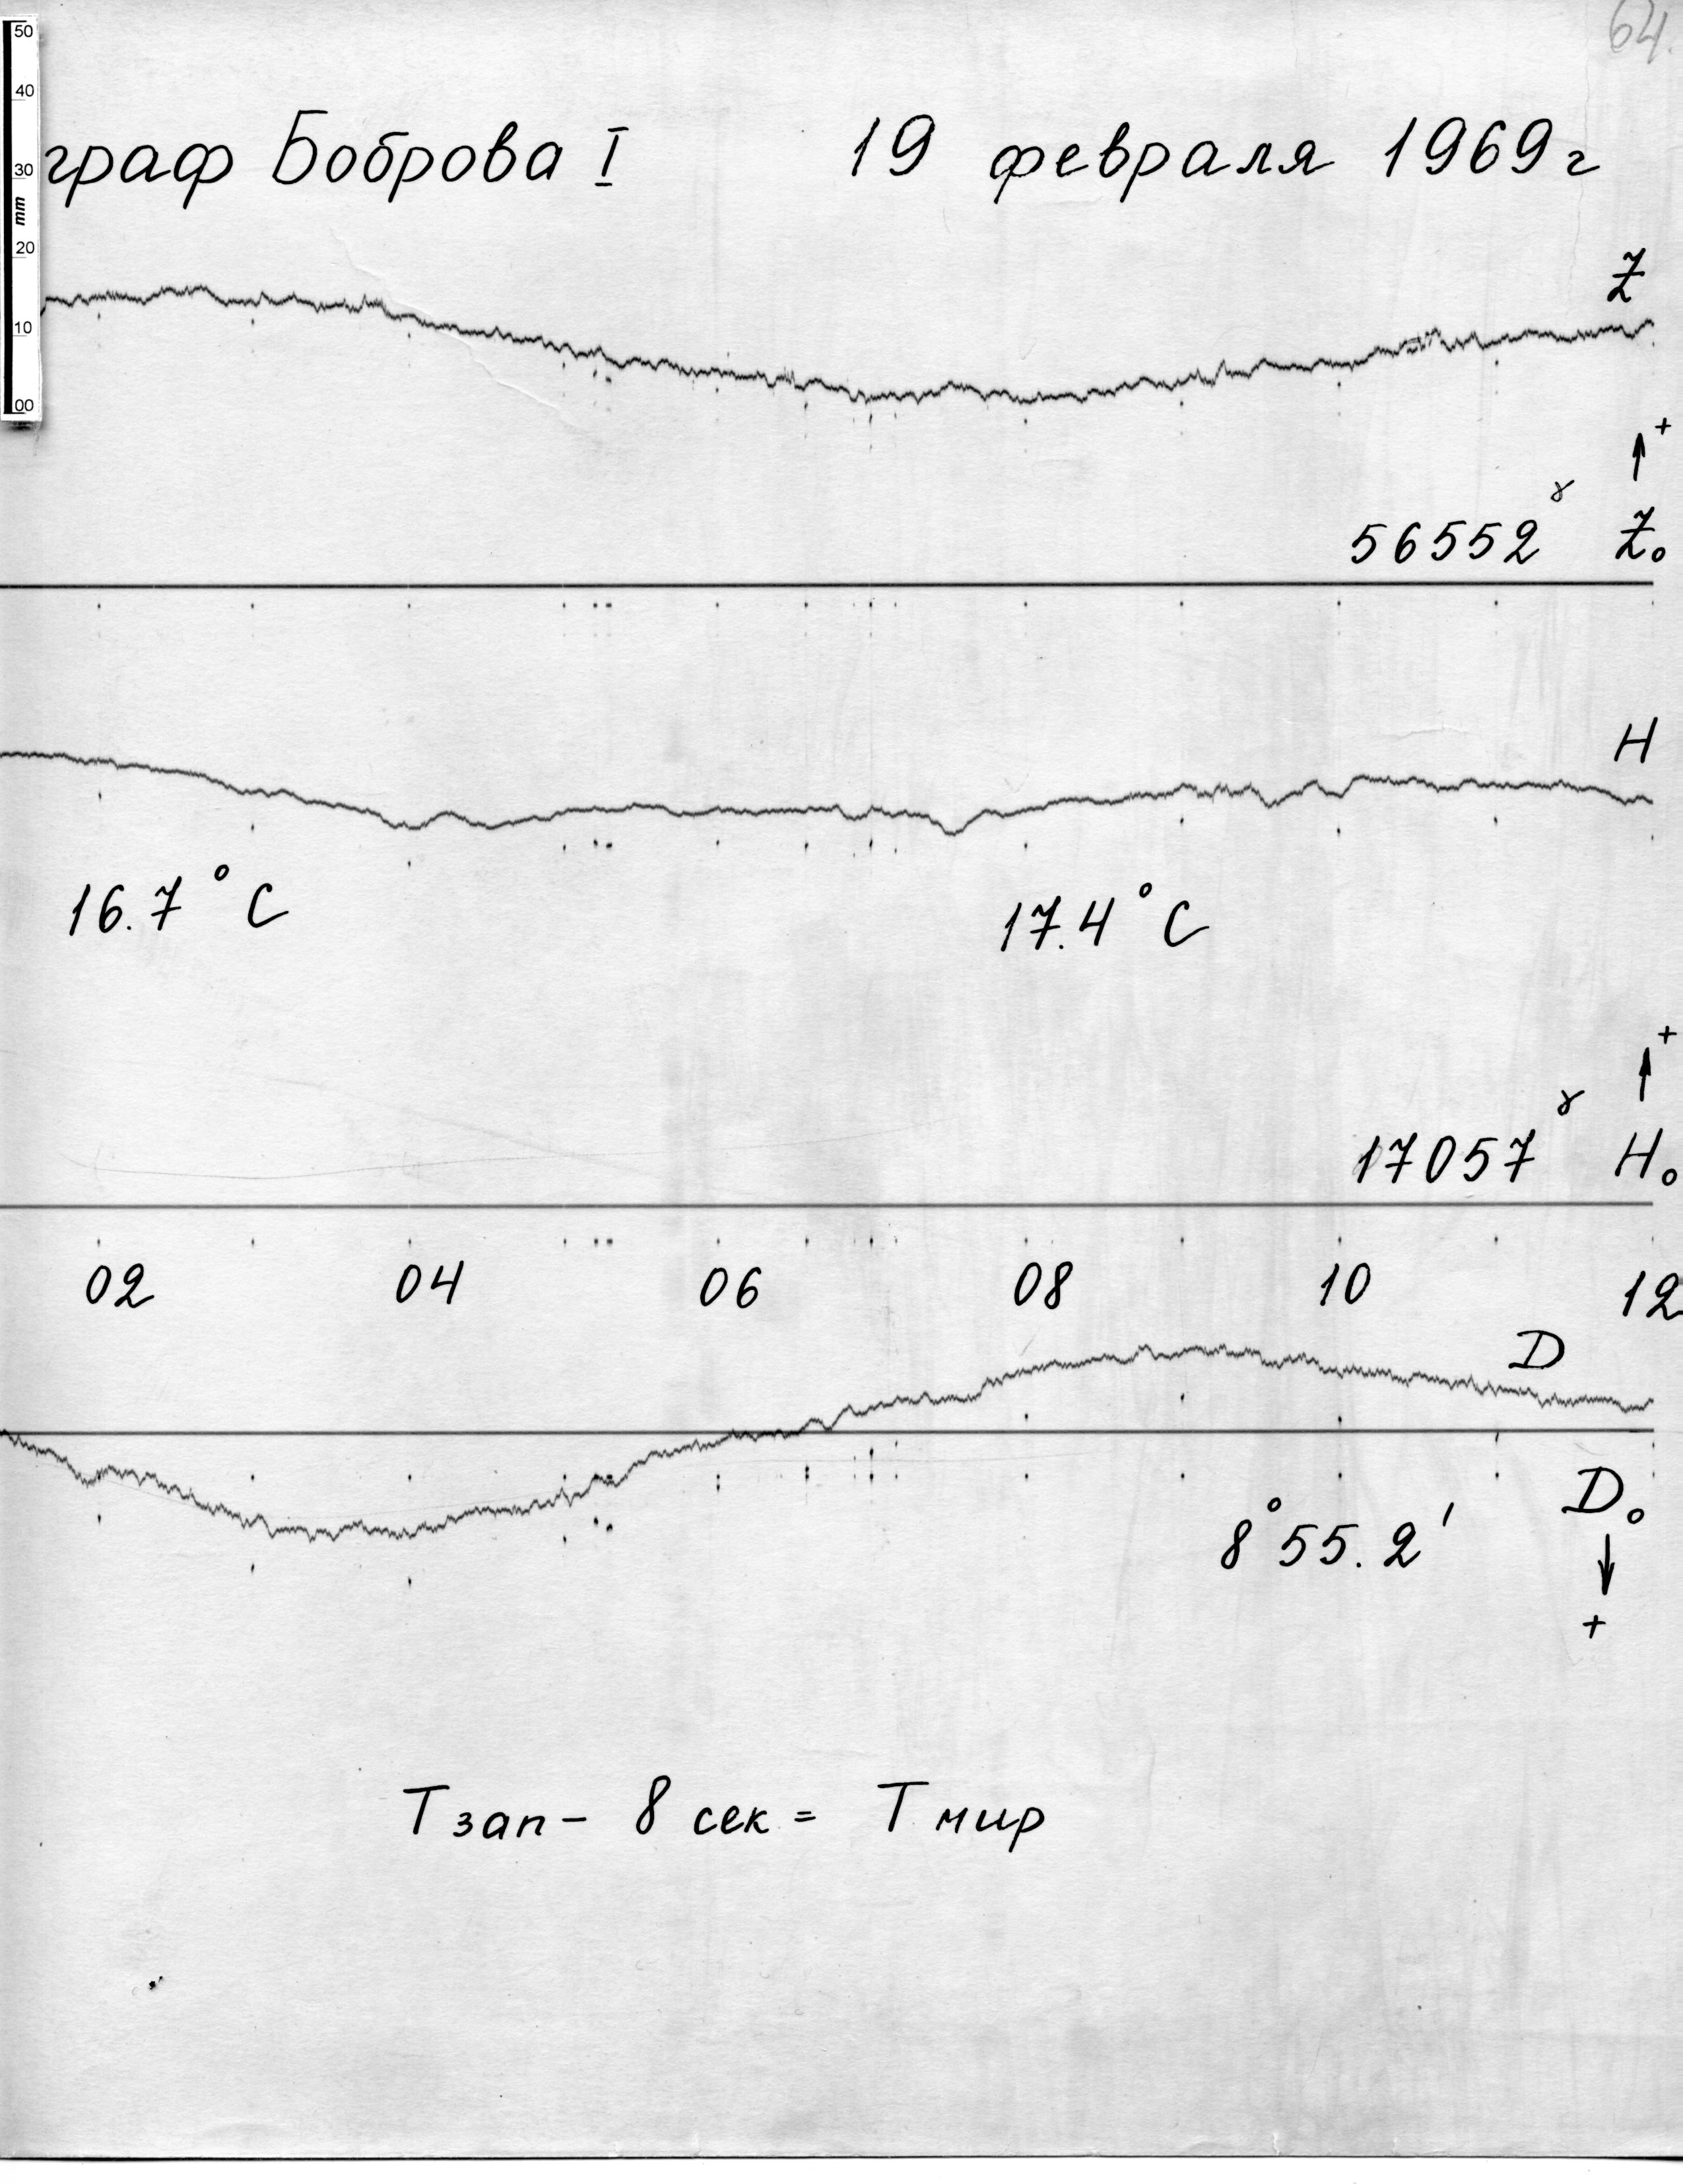 64.
50
40
30
mm
20
10
00
граф Боброва I 19 февраля 1969 г
Z
+
56552 γ Z₀
H
16.7 °C 17.4 °C
+
17057 γ H₀
02 04 06 08 10 12
D
8° 55.2' D₀
+
Тзап - 8 сек = Тмир